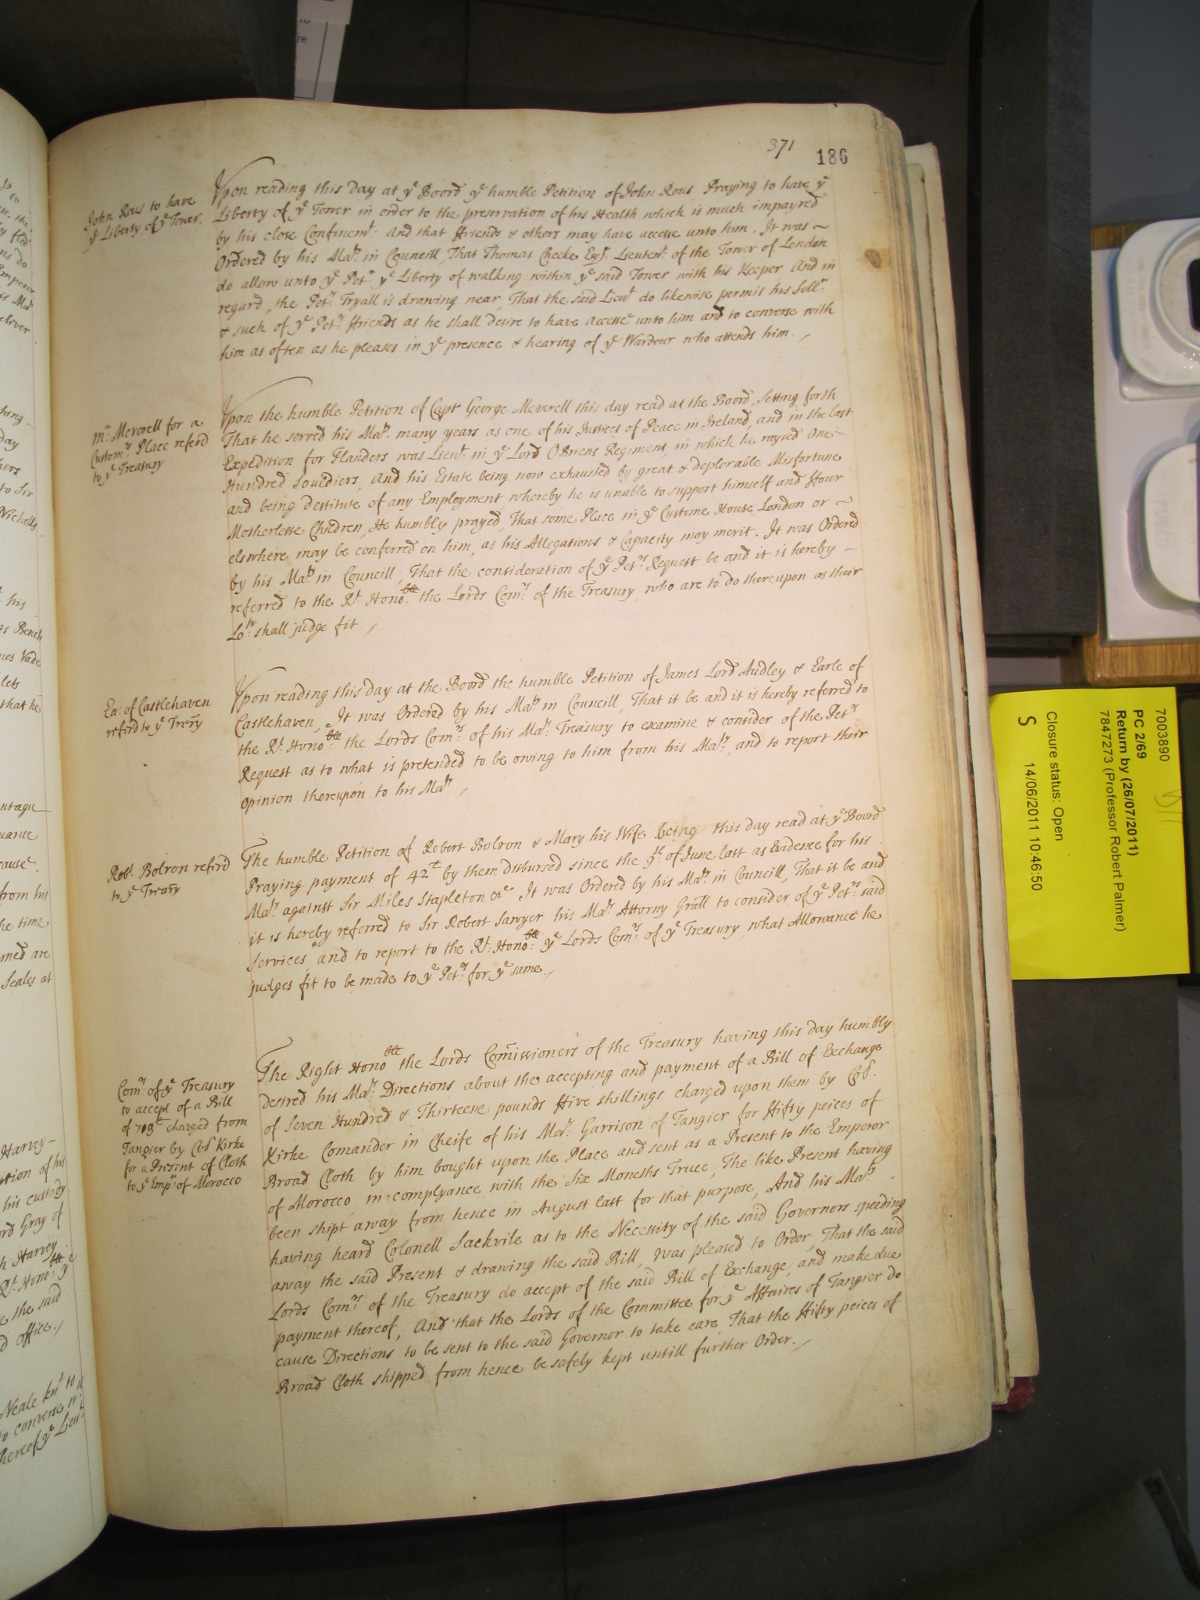 371
186
John Rous to have
yᵉ Liberty of yᵉ Tower.
Upon reading this day at yᵉ Board yᵉ humble Petition of John Rous Praying to have yᵉ
Liberty of yᵉ Tower in order to the preservation of his Health which is much impayred
by his close Confinemᵗ. And that ffriends & others may have accesse unto him. It was ~
Ordered by his Maᵗʸ in Councill, That Thomas Cheeke Esqʳ. Lieutenᵗ. of the Tower of London
do allow unto yᵉ Petʳ. yᵉ Liberty of walking within yᵉ said Tower with his Keeper And in
regard, the Petʳˢ. Tryall is drawing near That the said Lieuᵗ do likewise permit his Sollʳ.
& such of yᵉ Petʳˢ. ffriends as he shall desire to have accesse unto him and to converse with
him as often as he pleases in yᵉ presence & hearing of yᵉ Wardour who attends him. /
Mʳ. Meverell for a
Customʳˢ Place referd
to yᵉ Treasury
Upon the humble Petition of Capᵗ George Meverell this day read at the Board, Setting forth
That he served his Maᵗʸ. many years as one of his Justices of Peace in Ireland, and in the last
Expedition for Flanders was Lieuᵗ. in yᵉ Lord OBriens Regiment, in which he rayed One ~
Hundred Souldiers, And his Estate being now exhausted by great & deplorable Misfortune
and being destitute of any Employment whereby he is unable to support himself and ffour
Motherlesse Children, He humbly prayed, That some Place in yᵉ Custome House London or ~
elswhere may be conferred on him, as his Allegations & Capacity may merit. It was Ordered
by his Maᵗʸ in Councill, That the consideration of yᵉ Petʳˢ Request be and it is hereby ~
referred to the Rᵗ. Honoᵇˡᵉ: the Lords Comʳˢ. of the Treasury, who are to do thereupon as their
Loᵖˢ shall judge fit. /
Ea: of Castlehaven
referd to yᵉ Trery
Upon reading this day at the Board the humble Petition of James Lord Audley & Earle of
Castlehaven, It was Ordered by his Maᵗʸ. in Councill, That it be and it is hereby referred to
the Rᵗ. Honoᵇˡᵉ: the Lords Comʳˢ. of his Maᵗˢ. Treasury to examine & consider of the Petʳˢ.
Request as to what is pretended to be owing to him from his Maᵗʸ. and to report their
Opinion thereupon to his Maᵗʸ. /
Robᵗ. Bolron referd
to yᵉ Trery
The humble Petition of Robert Bolron & Mary his Wife being this day read at yᵉ Board
Praying payment of 42ˡⁱ by them disbursed since the 9ᵗʰ. of June last as Evidence for his
Maᵗʸ. against Sir Miles Stapleton &c. It was Ordered by his Maᵗʸ. in Councill, That it be and
it is hereby referred to Sir Robert Sawyer his Maᵗˢ. Attorny Grãll to consider of yᵉ Petʳˢ. said
services and to report to the Rᵗ. Honoᵇˡᵉ: yᵉ Lords Comʳˢ. of yᵉ Treasury what Allowance he
judges fit to be made to yᵉ Petʳˢ for yᵉ same. /
Comʳˢ. of yᵉ Treasury
to accept of a Bill
of 713ˡⁱ charged from
Tangier by Coˡˡ Kirke
for a Present of Cloth
to yᵉ Empʳ. of Morocco
The Right Honoᵇˡᵉ the Lords Com̃issioners of the Treasury having this day humbly
desired his Maᵗˢ. Directions about the accepting and payment of a Bill of Exchange
of Seven Hundred & Thirteene pounds ffive shillings charged upon them by Coˡˡ.
Kirke Comander in Cheife of his Maᵗˢ. Garrison of Tangier for ffifty peices of
Broad Cloth by him bought upon the Place and sent as a Present to the Emperor
of Morocco in complyance with the Six Moneths Truce, The like Present having
been shipt away from hence in August last for that purpose, And his Maᵗʸ.
having heard Colonell Sackvile as to the Necessity of the said Governors speeding
away the said Present & drawing the said Bill, was pleased to Order, That the said
Lords Comʳˢ. of the Treasury do accept of the said Bill of Exchange, and make due
payment thereof, And that the Lords of the Committee for yᵉ Affaires of Tangier do
cause Directions to be sent to the said Governor to take care That the ffifty peices of
Broad Cloth shipped from hence be safely kept untill further Order. /
7003890
PC 2/69
Return by (26/07/2011)
7847273 (Professor Robert Palmer)
Closure status: Open
S 14/06/2011 10:46:50